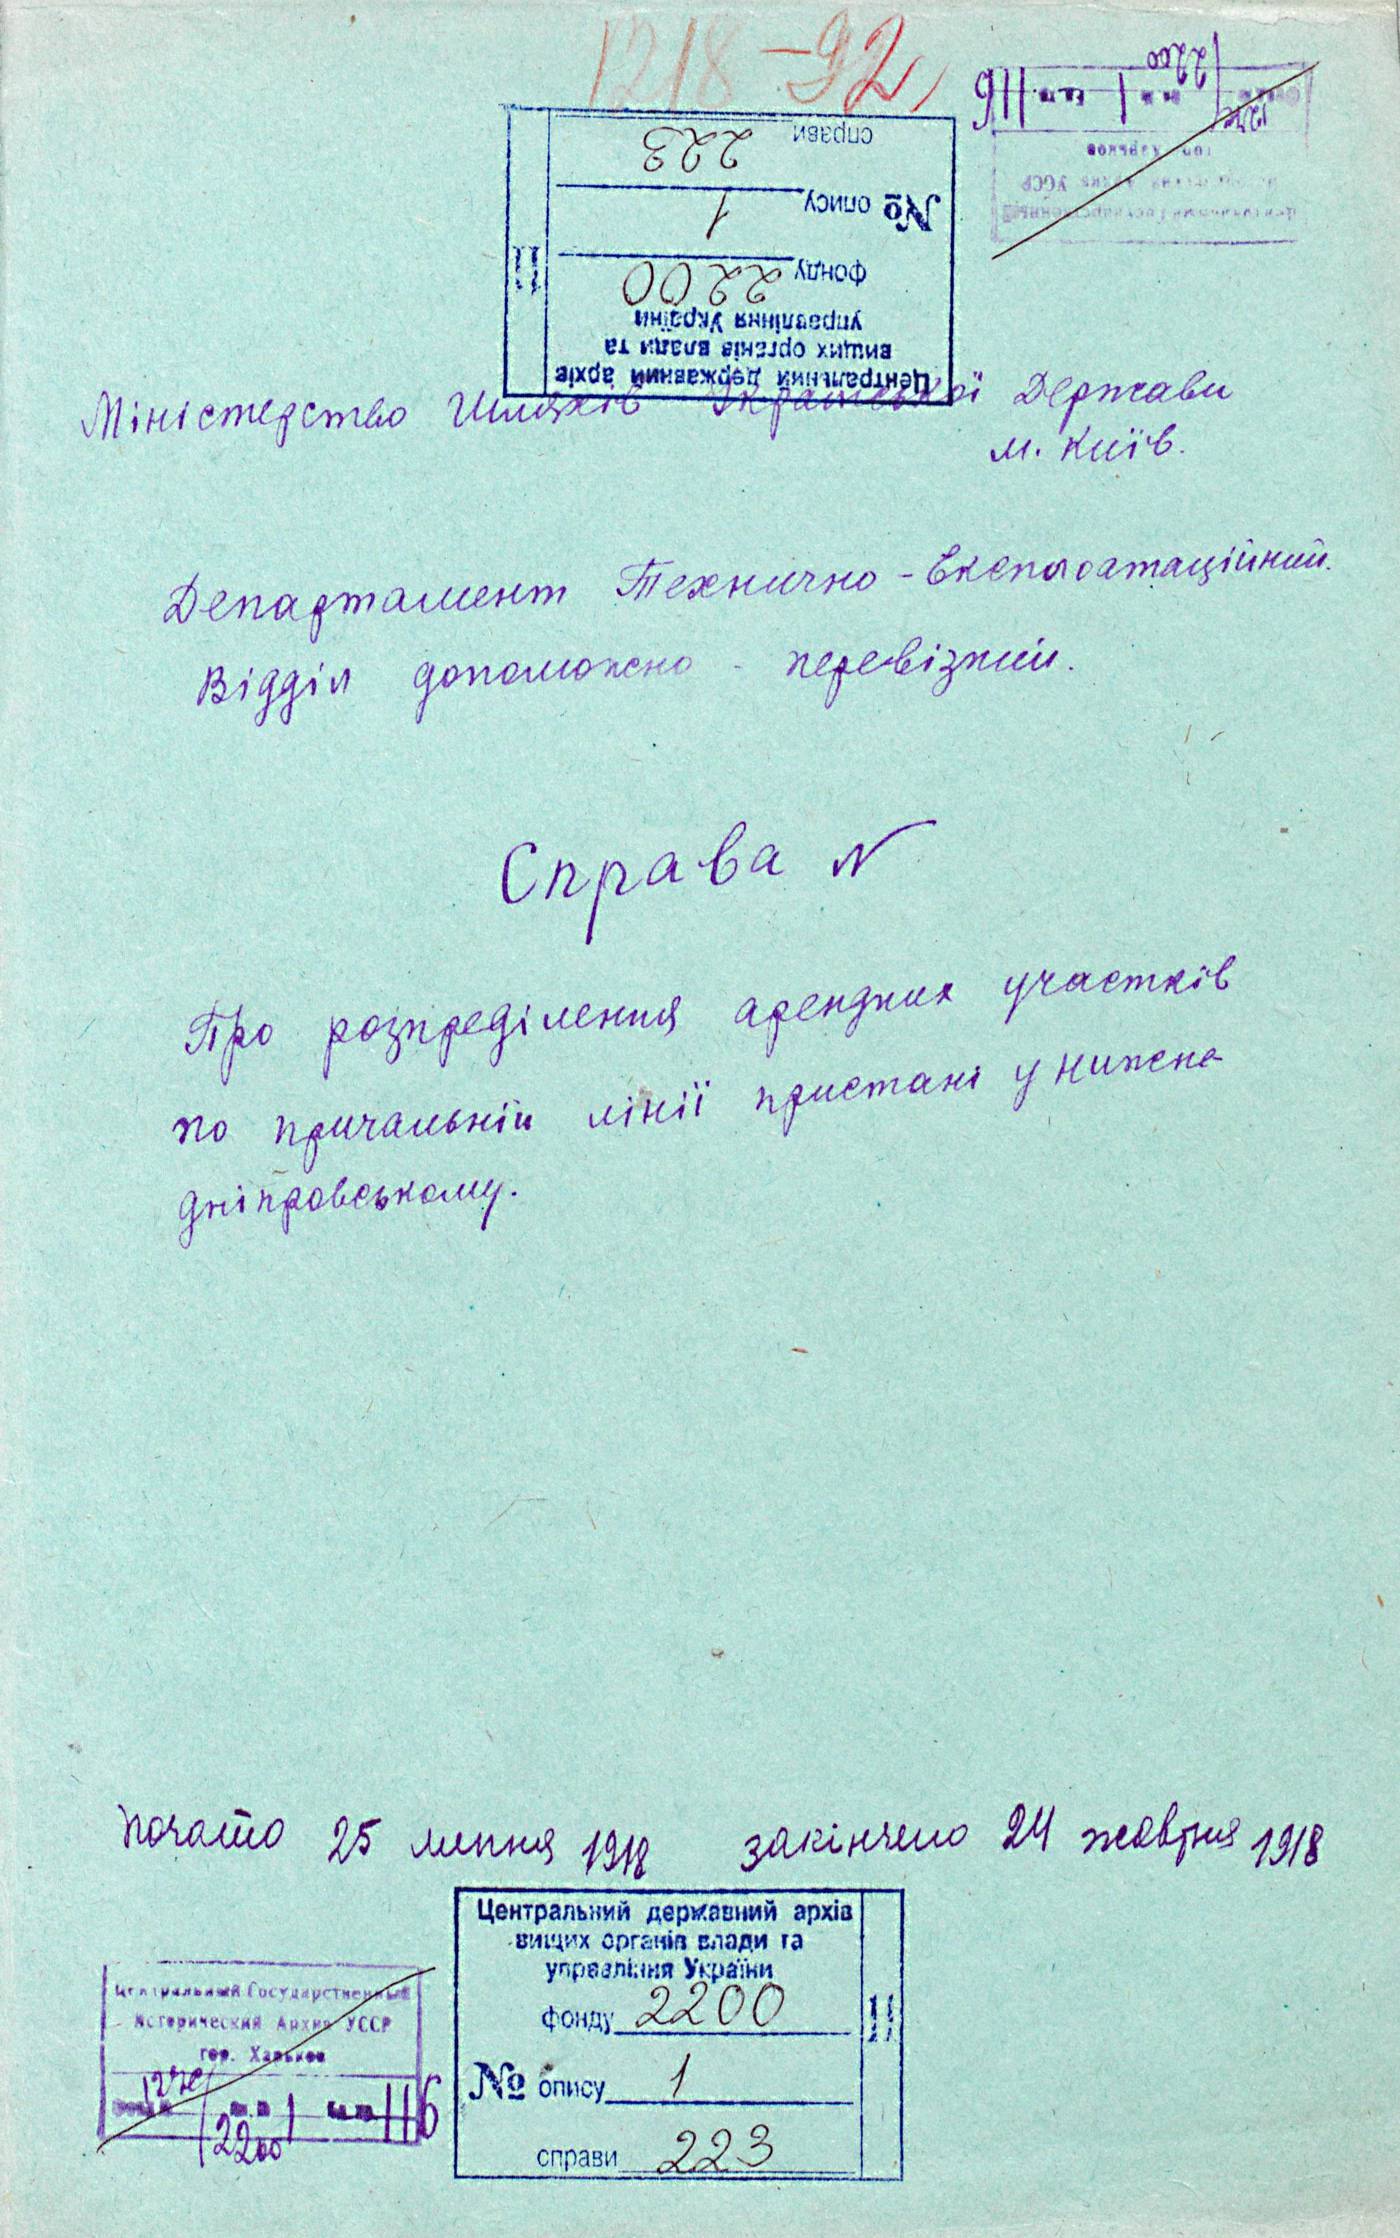 1218-92
справи 223
№ опису 1
фонду 2200
управління України
вищих органів влади та
Центральний державний архів
11
2200
1 116
гор. Харьков
Исторический Архив УССР
Центральный Государственный
Міністерство Шляхів Української Держави
м. Київ.
Департамент Технично-Експлоатаційний.
Відділ допоможно-перевізний.
Справа N
Про розпреділення арендних участків
по причальній лінії пристані у нижне-
дніпровському.
почато 25 липня 1918 закінчено 24 жовтня 1918
Центральний державний архів
вищих органів влади та
управління України
фонду 2200
№ опису 1
справи 223
11
Центральный Государственный
Исторический Архив УССР
гор. Харьков
1 116
2200